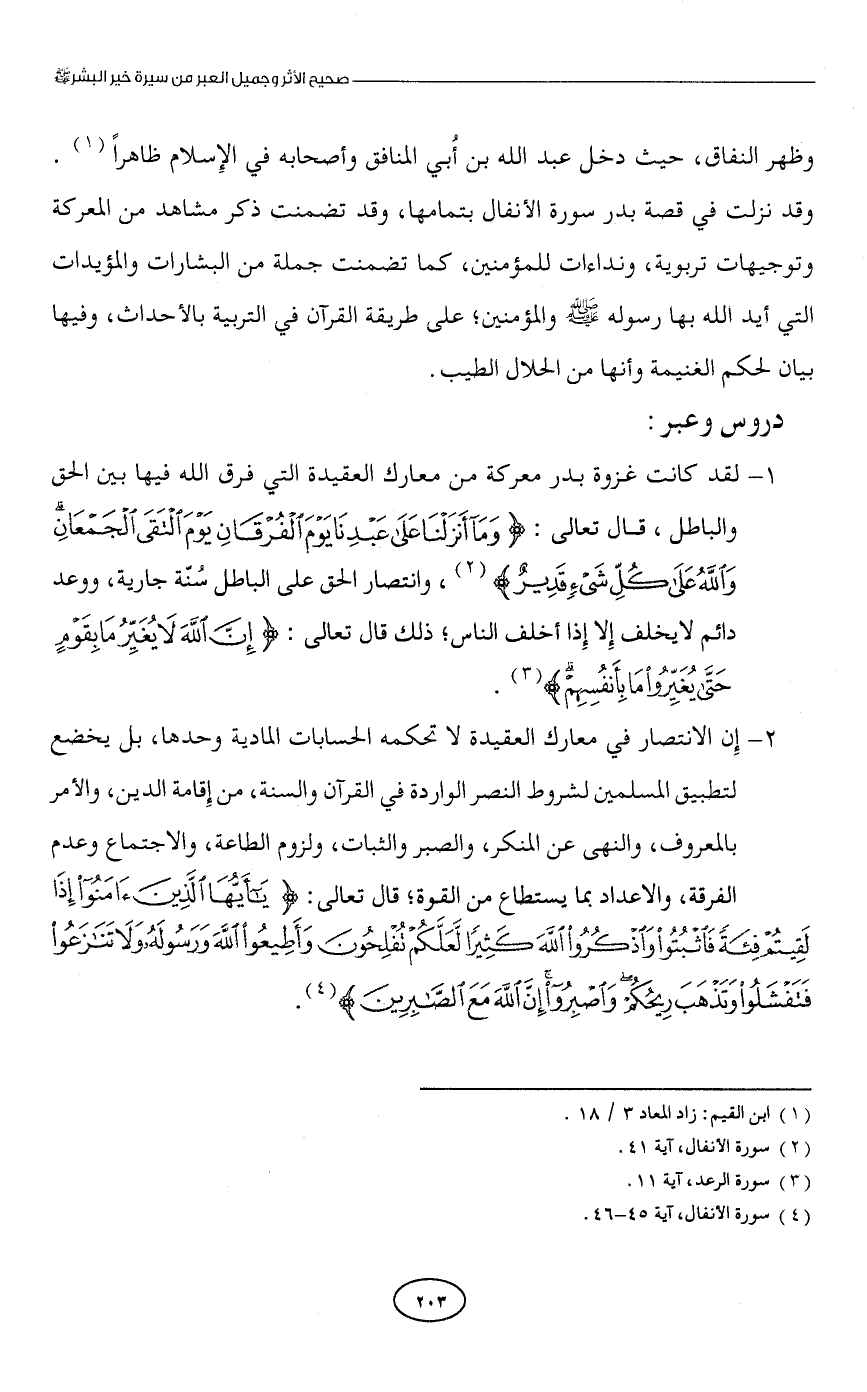 صحيح الأثر وجميل العبر من سيرة خير البشر ﷺ
وظهر النفاق، حيث دخل عبد الله بن أُبي المنافق وأصحابه في الإسلام ظاهراً (١) .
وقد نزلت في قصة بدر سورة الأنفال بتمامها، وقد تضمنت ذكر مشاهد من المعركة
وتوجيهات تربوية، ونداءات للمؤمنين، كما تضمنت جملة من البشارات والمؤيدات
التي أيد الله بها رسوله ﷺ والمؤمنين؛ على طريقة القرآن في التربية بالأحداث، وفيها
بيان لحكم الغنيمة وأنها من الحلال الطيب.
دروس وعبر :
١- لقد كانت غزوة بدر معركة من معارك العقيدة التي فرق الله فيها بين الحق
والباطل ، قال تعالى : ﴿ وَمَآ أَنزَلْنَا عَلَىٰ عَبْدِنَا يَوْمَ ٱلْفُرْقَانِ يَوْمَ ٱلْتَقَى ٱلْجَمْعَانِ ۗ
وَٱللَّهُ عَلَىٰ كُلِّ شَىْءٍ قَدِيرٌ ﴾ (٢) ، وانتصار الحق على الباطل سُنّة جارية، ووعد
دائم لايخلف إلا إذا أخلف الناس؛ ذلك قال تعالى : ﴿ إِنَّ ٱللَّهَ لَا يُغَيِّرُ مَا بِقَوْمٍ
حَتَّىٰ يُغَيِّرُوا۟ مَا بِأَنفُسِهِمْ ۗ ﴾ (٣) .
٢- إن الانتصار في معارك العقيدة لا تحكمه الحسابات المادية وحدها، بل يخضع
لتطبيق المسلمين لشروط النصر الواردة في القرآن والسنة، من إقامة الدين، والأمر
بالمعروف، والنهى عن المنكر، والصبر والثبات، ولزوم الطاعة، والاجتماع وعدم
الفرقة، والاعداد بما يستطاع من القوة؛ قال تعالى: ﴿ يَٰٓأَيُّهَا ٱلَّذِينَ ءَامَنُوٓا۟ إِذَا
لَقِيتُمْ فِئَةً فَٱثْبُتُوا۟ وَٱذْكُرُوا۟ ٱللَّهَ كَثِيرًا لَّعَلَّكُمْ تُفْلِحُونَ وَأَطِيعُوا۟ ٱللَّهَ وَرَسُولَهُۥ وَلَا تَنَٰزَعُوا۟
فَتَفْشَلُوا۟ وَتَذْهَبَ رِيحُكُمْ ۖ وَٱصْبِرُوٓا۟ ۚ إِنَّ ٱللَّهَ مَعَ ٱلصَّٰبِرِينَ ﴾ (٤) .
(١) ابن القيم: زاد المعاد ٣ / ١٨ .
(٢) سورة الأنفال، آية ٤١.
(٣) سورة الرعد، آية ١١.
(٤) سورة الأنفال، آية ٤٥-٤٦.
٢٠٣